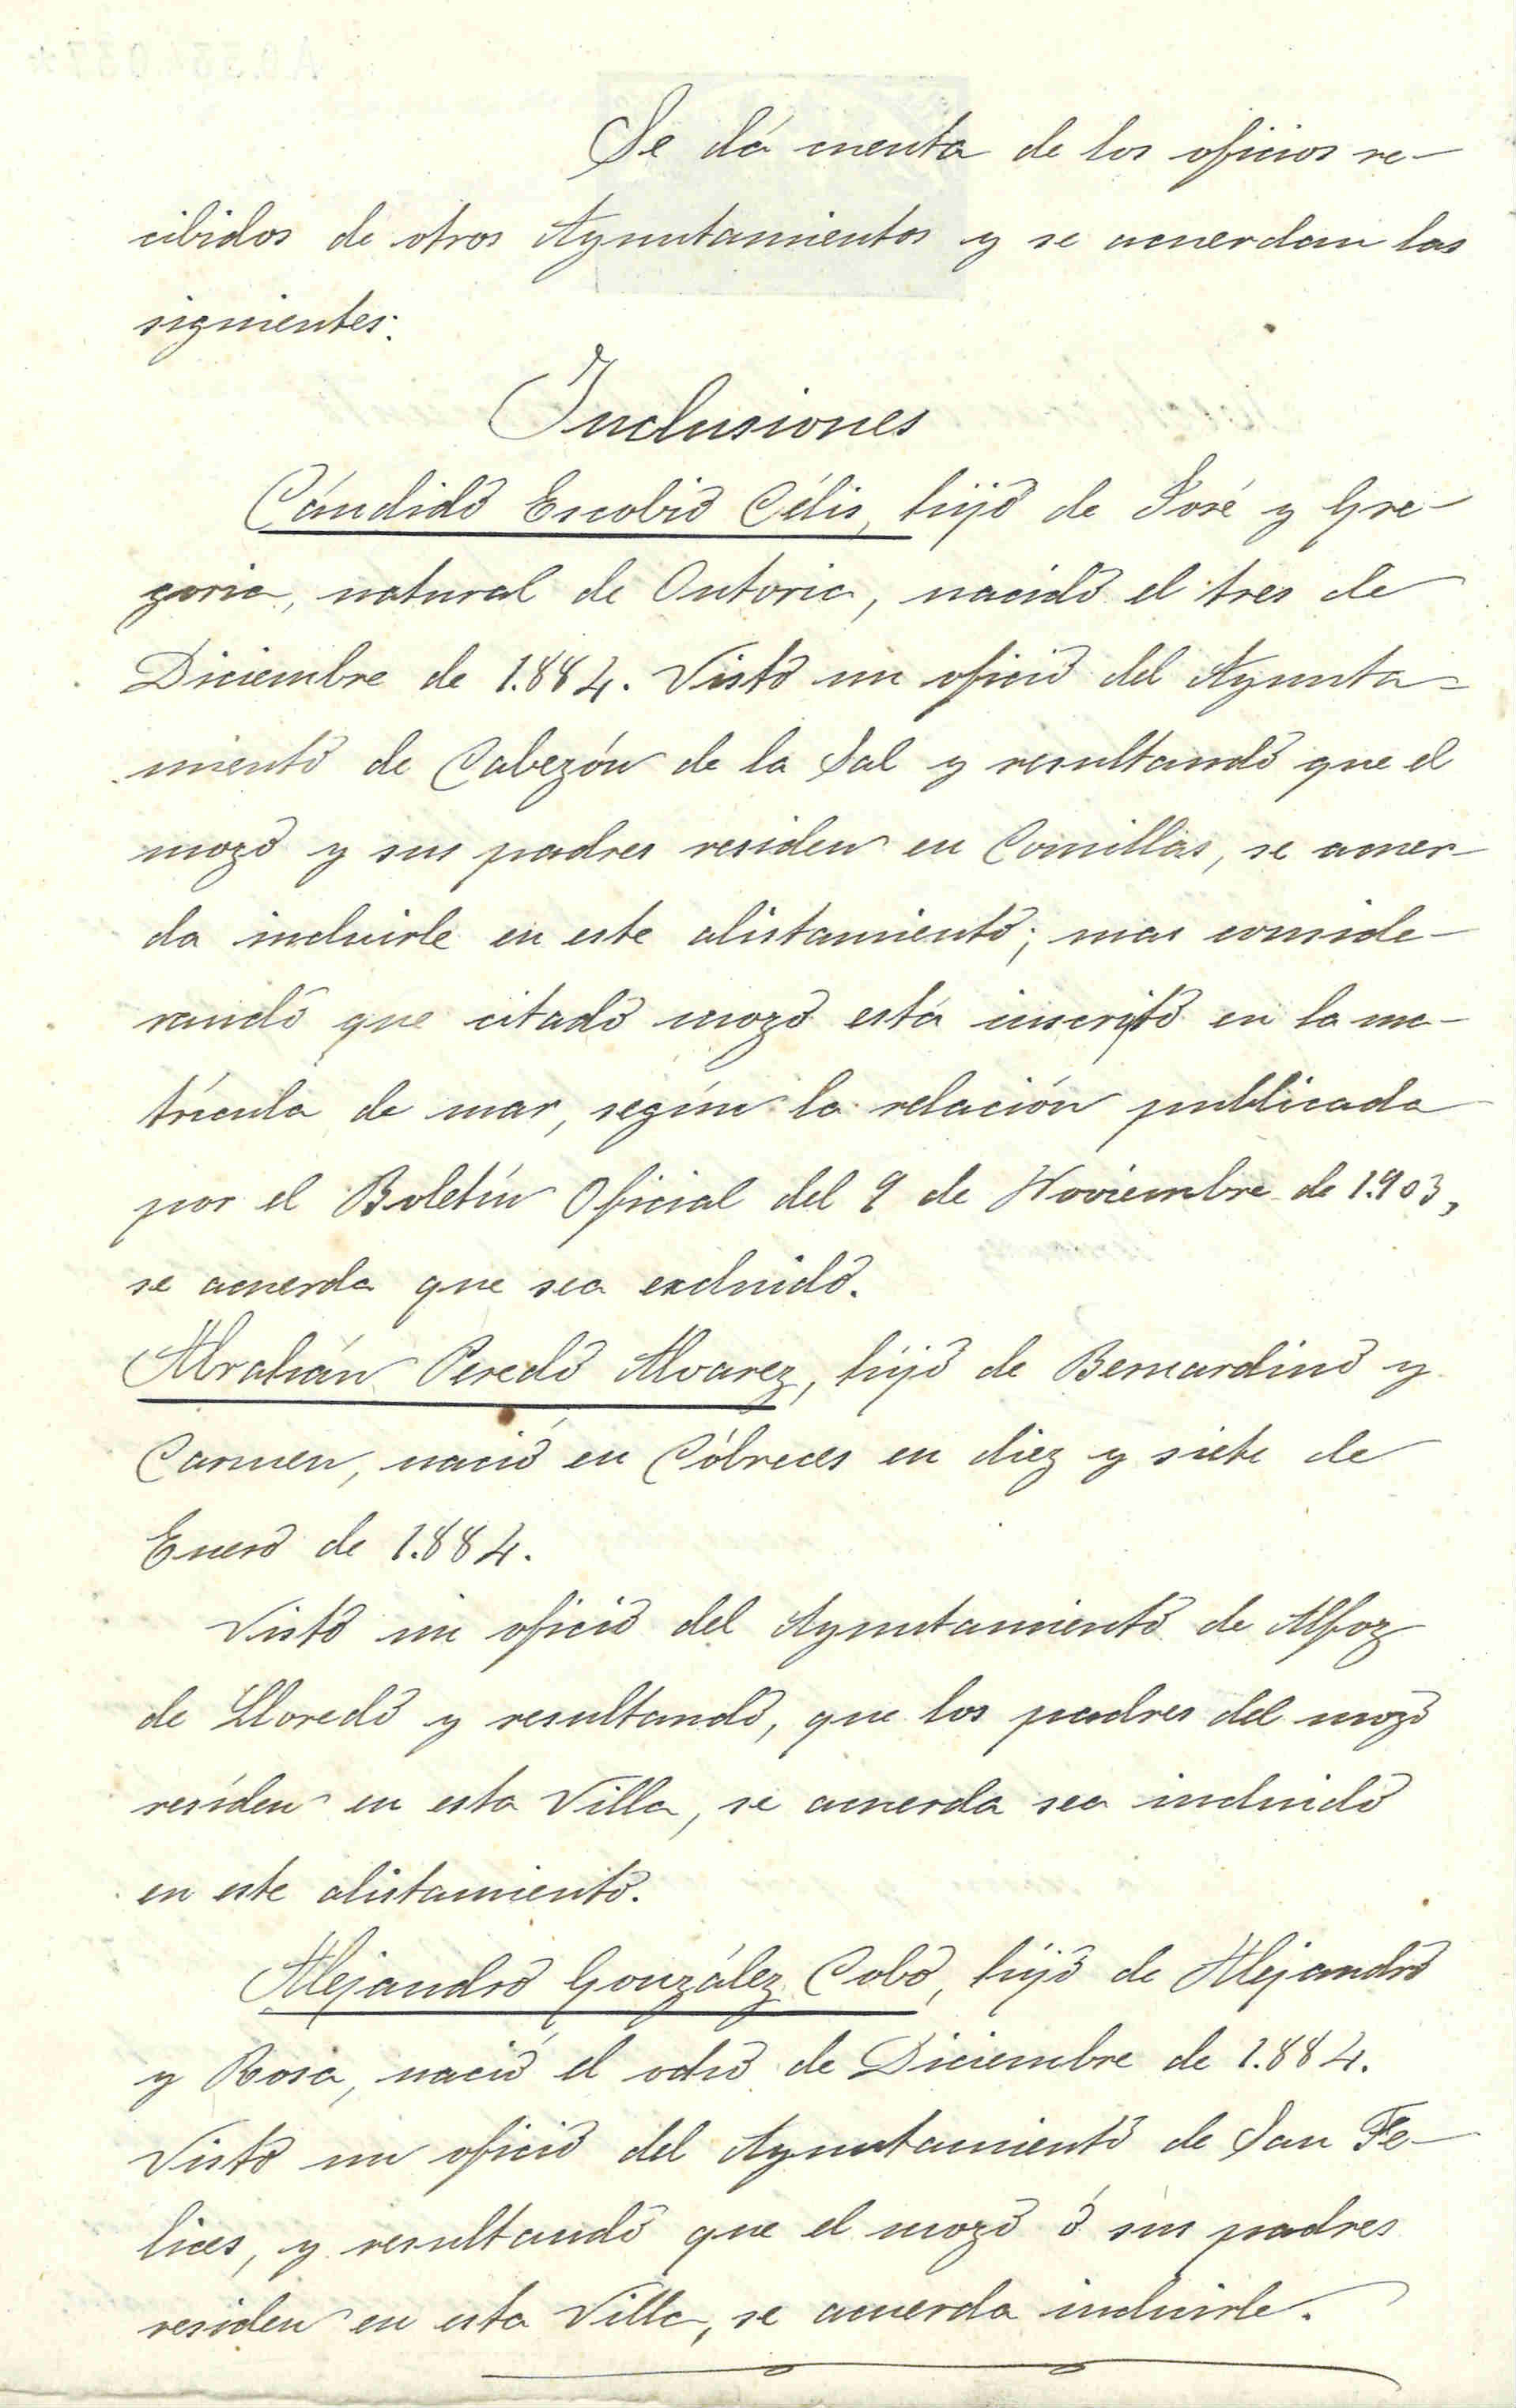 Se dá cuenta de los oficios re-
cibidos de otros Ayuntamientos y se acuerdan las
siguientes:
Inclusiones
Cándido Escobio Célis, hijo de José y Gre-
goria, natural de Ontoria, nacido el tres de
Diciembre de 1.884. Visto un oficio del Ayunta=
miento de Cabezón de la Sal y resultando que el
mozo y sus padres residen en Comillas, se acuer-
da incluirle en este alistamiento; mas conside-
rando que citado mozo está inscrito en la ma-
trícula de mar, según la relación publicada
por el Boletín Oficial del 9 de Noviembre de 1.903,
se acuerda que sea excluido.
Abrahán Peredo Alvarez, hijo de Bernardino y
Carmen, nació en Cóbreces en diez y siete de
Enero de 1.884.
Visto un oficio del Ayuntamiento de Alfoz
de Lloredo y resultando, que los padres del mozo
residen en esta Villa, se acuerda sea incluido
en este alistamiento.
Alejandro González Cobo, hijo de Alejandro
y Rosa, nació el ocho de Diciembre de 1.884.
Visto un oficio del Ayuntamiento de San Fe-
lices, y resultando que el mozo ó sus padres
residen en esta Villa, se acuerda incluirle.